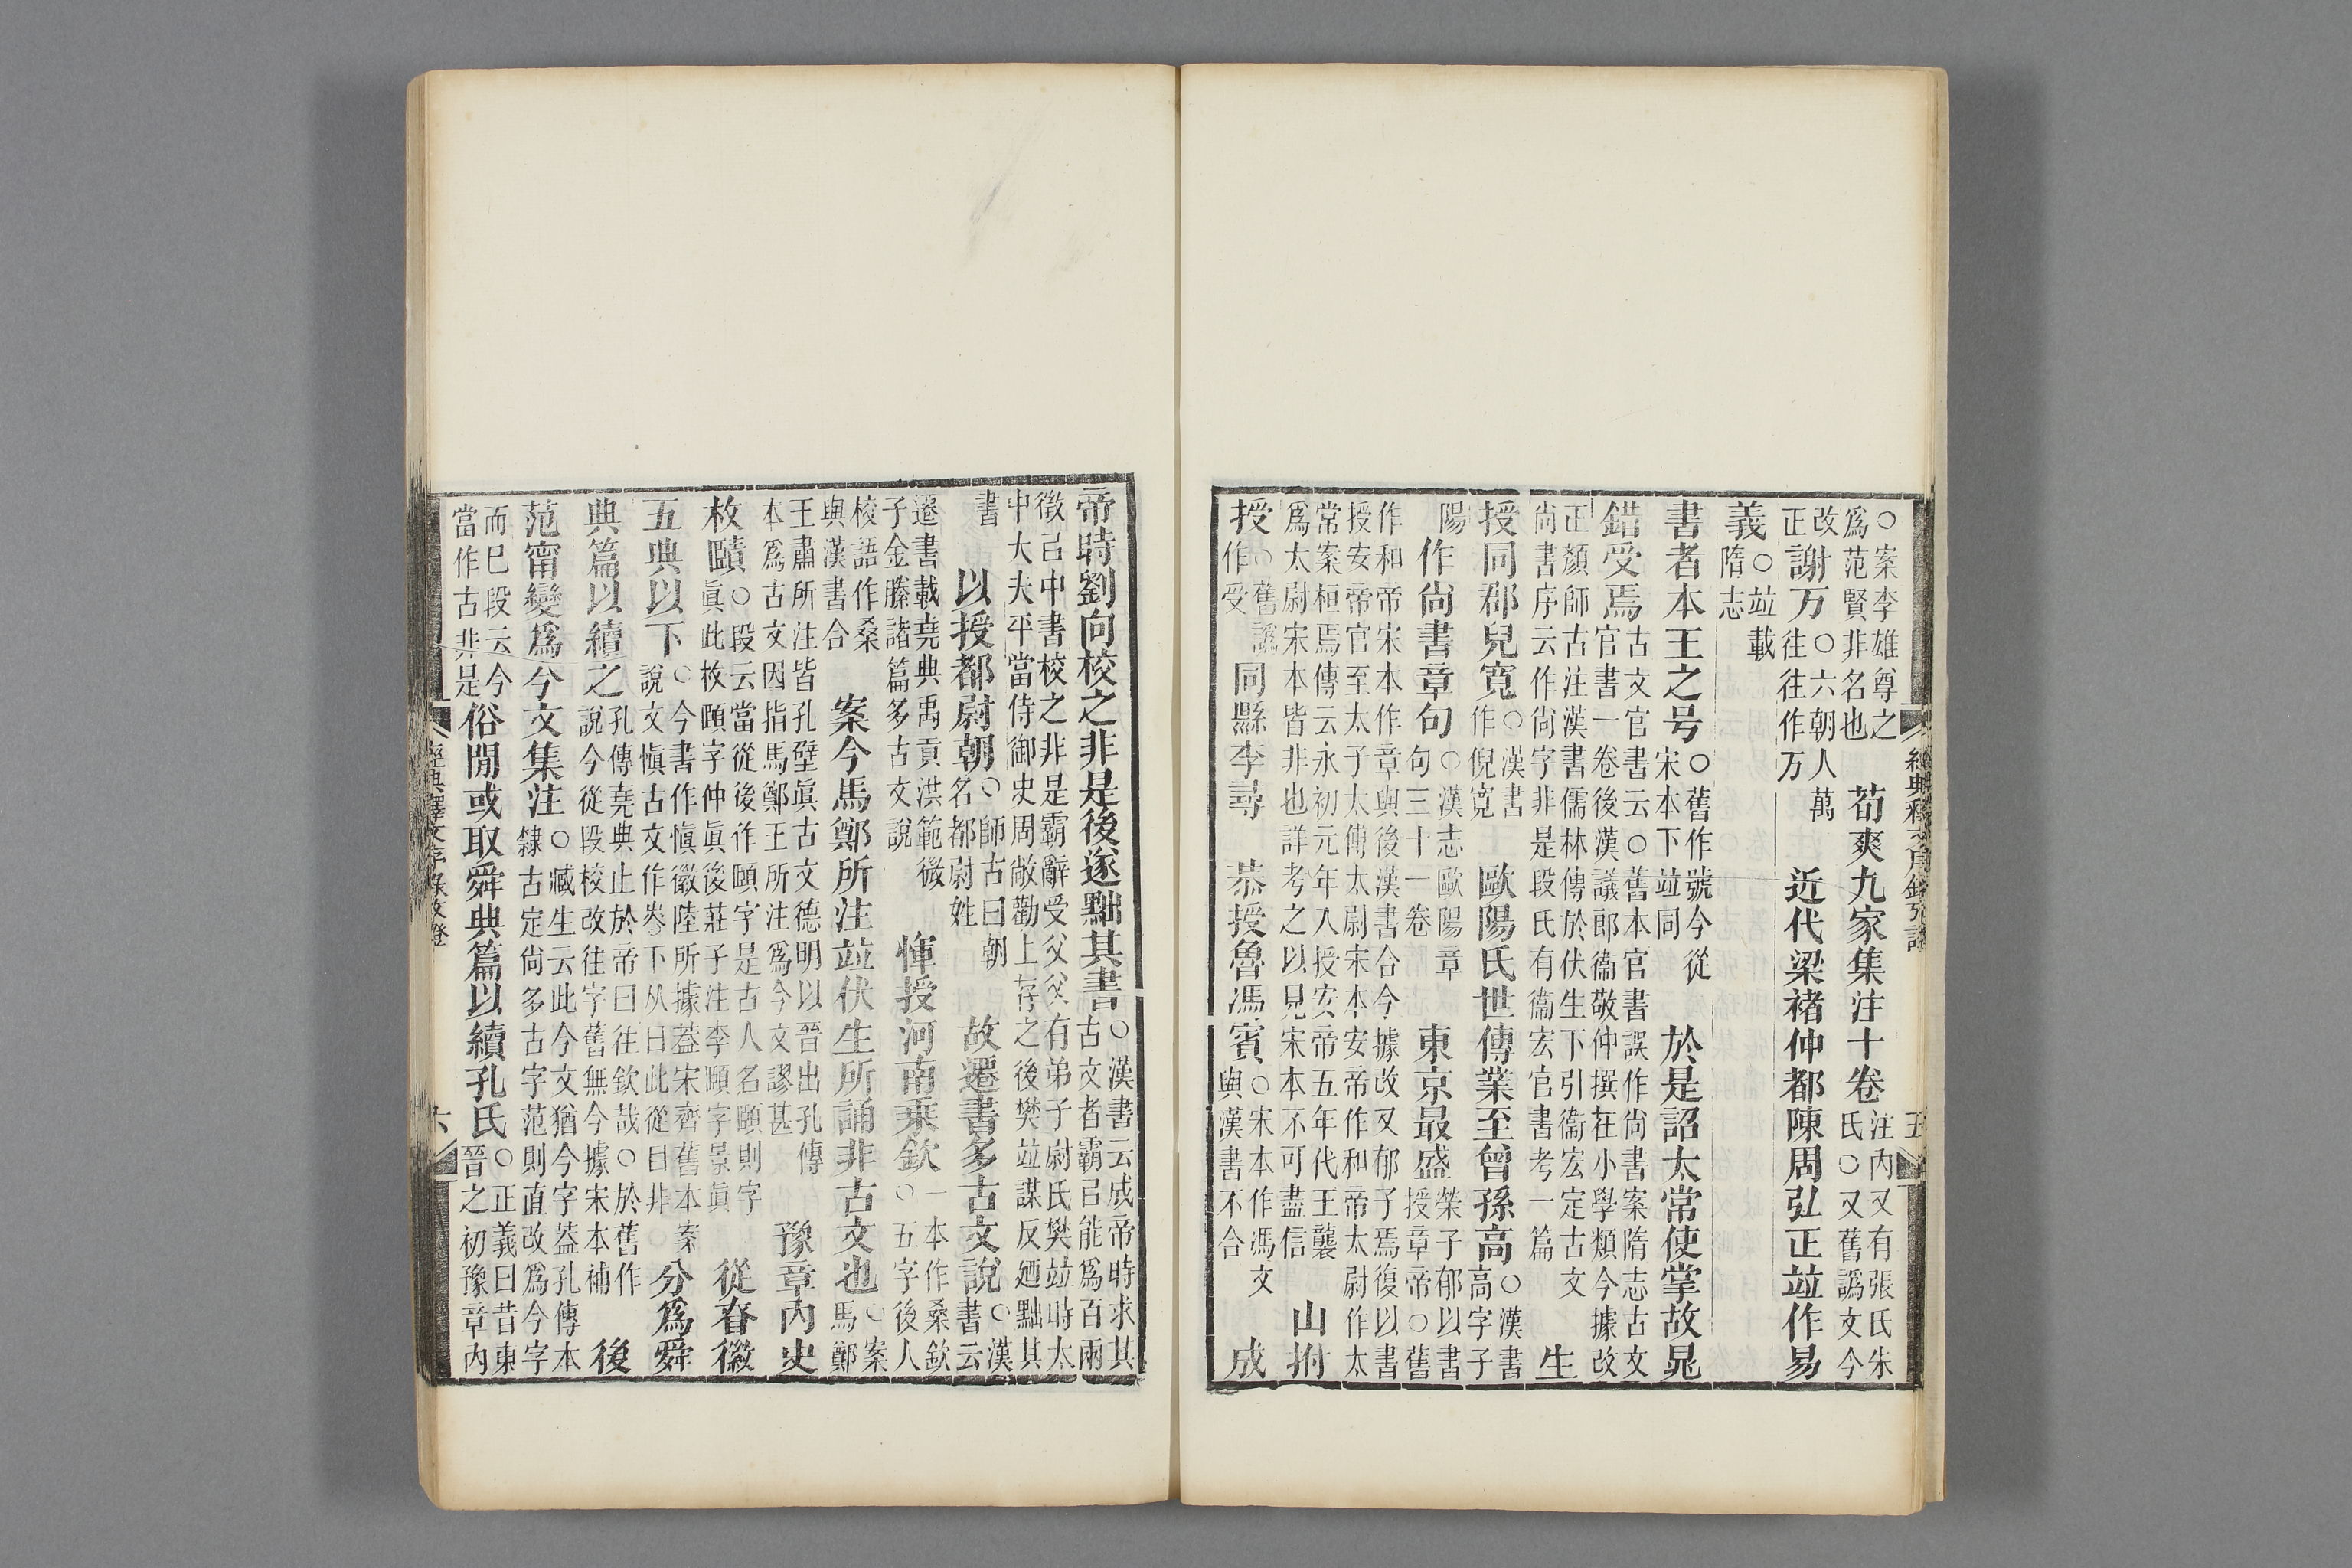 ○案李雄尊之爲范賢非名也 荀爽九家集注十卷 注內又有張氏朱氏○又舊譌文今
改正 謝万 ○六朝人萬往往作万 近代梁褚仲都陳周弘正竝作易
義 ○竝載隋志
書者本王之号 ○舊作號今從宋本下竝同 於是詔太常使掌故晁
錯受焉 古文官書云○舊本官書誤作尙書案隋志古文官書一卷後漢議郎衞敬仲撰在小學類今據改
正顏師古注漢書儒林傳於伏生下引衞宏定古文尙書序云作尙字非是段氏有衞宏官書考一篇 生
授同郡兒寬 ○漢書作倪寬 歐陽氏世傳業至曾孫高 ○漢書高字子
陽 作尙書章句 ○漢志歐陽章句三十一卷 東京最盛 榮子郁以書授章帝○舊
作和帝宋本作章與後漢書合今據改又郁子焉復以書授安帝官至太子太傅太尉宋本安帝作和帝太尉作太
常案桓焉傳云永初元年入授安帝五年代王襲爲太尉宋本皆非也詳考之以見宋本不可盡信 山拊
授 ○舊譌作受 同縣李尋 恭授魯馮賓 ○宋本作馮文與漢書不合 成
經典釋文序錄攷證 五
帝時劉向校之非是後遂黜其書 ○漢書云成帝時求其古文者霸㠯能爲百兩
徵㠯中書校之非是霸辭受父父有弟子尉氏樊竝時太中大夫平當侍御史周敞勸上存之後樊竝謀反廼黜其
書 以授都尉朝 ○師古曰朝名都尉姓 故遷書多古文說 ○漢書云
遷書載堯典禹貢洪範微子金縢諸篇多古文說 惲授河南乘欽 ○一本作桑欽五字後人
校語作桑與漢書合 案今馬鄭所注竝伏生所誦非古文也 ○案馬鄭
王肅所注皆孔壁眞古文德明以晉出孔傳本爲古文因指馬鄭王所注爲今文謬甚 豫章內史
枚賾 ○段云當從後作頤字是古人名頤則字眞此枚頤字仲眞後莊子注李頤字景眞 從眘徽
五典以下 ○今書作愼徽陸所據葢宋齊舊本案說文愼古文作㟒下从日此從目非 分爲舜
典篇以續之 孔傳堯典止於帝曰往欽哉○於舊作說今從段校改往字舊無今據宋本補 後
范甯變爲今文集注 ○臧生云此今文猶今字葢孔傳本隸古定尙多古字范則直改爲今字
而已段云今當作古非是 俗閒或取舜典篇以續孔氏 ○正義曰昔東晉之初豫章內
經典釋文序錄攷證 六